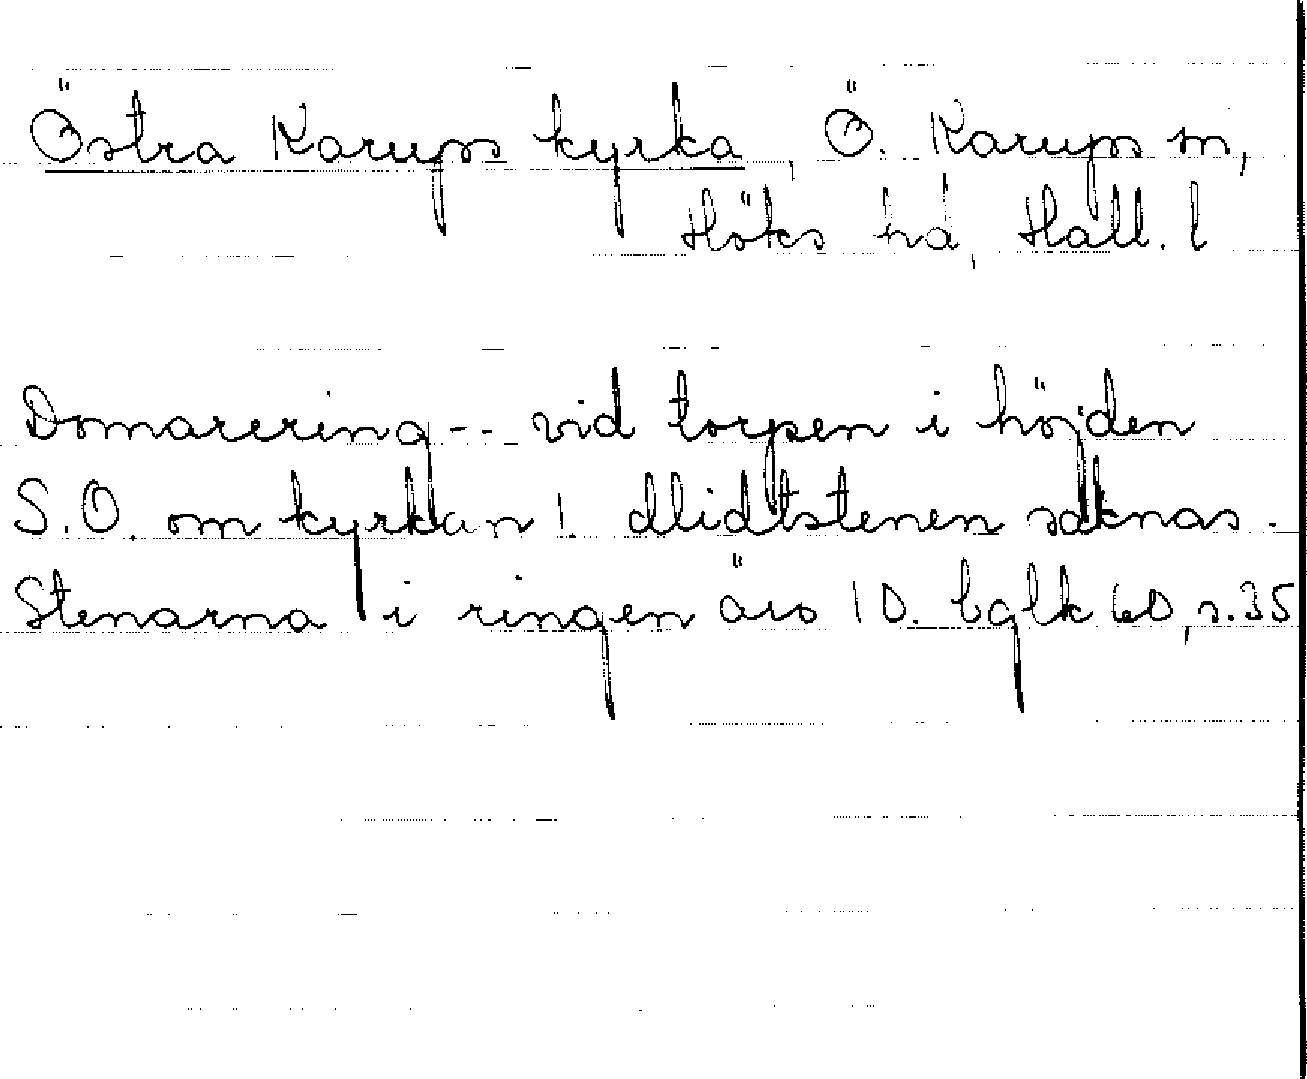 Östra Karups kyrka, Ö. Karups sn,
Höks hd, Hall. l
Domarering -- vid torpen i höjden
S.O. om kyrkan! Midtstenen saknas.
Stenarna i ringen äro 10. bglk 60, s. 35